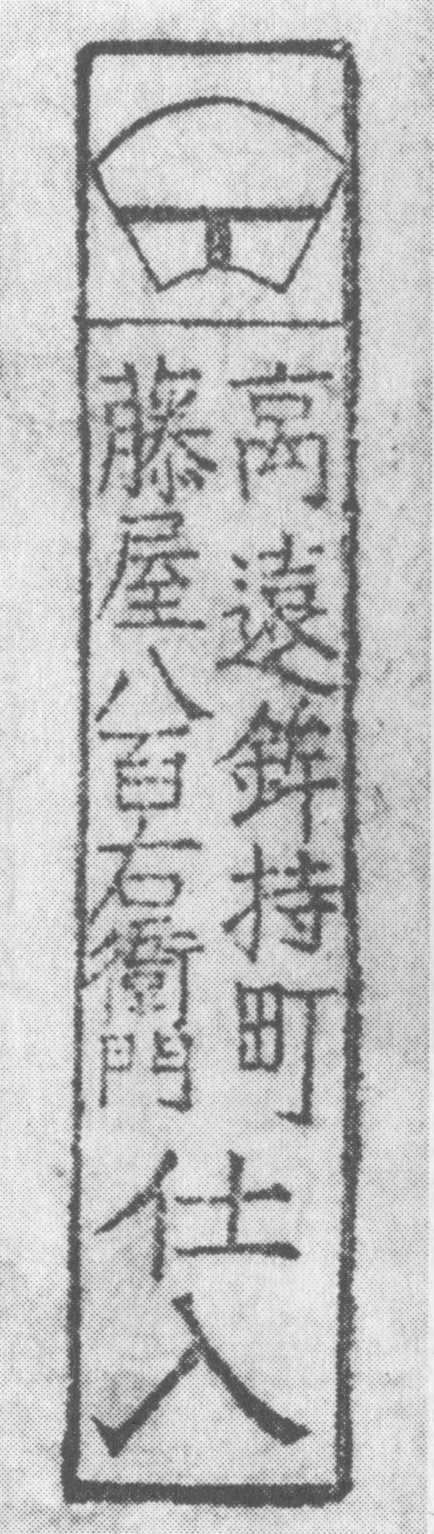 高遠鉾持町
藤屋八百右衛門
仕入